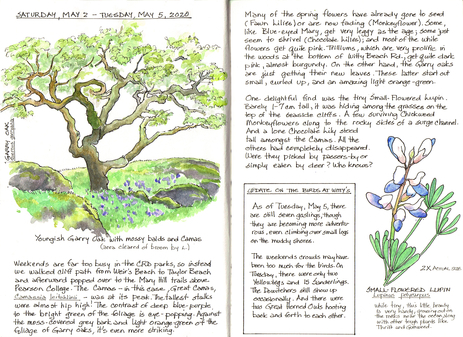 SATURDAY, MAY 2 – TUESDAY, MAY 5, 2020
GARRY OAK
Youngish Garry Oak with mossy balds and Camas
(area cleared of broom by L.)
Weekends are far too busy in the CRD parks, so instead
we walked cliff path from Weir's Beach to Taylor Beach
and afterwards popped over to the Mary Hill trails above
Pearson College. The Camas – in this case, Great Camas,
Camassia leichtlinii, – was at its peak. The tallest stalks
were almost hip high! The contrast of deep blue-purple
to the bright green of the foliage is eye-popping. Against
the moss-covered grey bark and light orange-green of the
foliage of Garry Oaks, it's even more striking!
Many of the spring flowers have already gone to seed
(Fawn Lilies) or are now fading (Monkeyflower). Some,
like Blue-eyed Mary, get very leggy as they age; some just
seem to shrivel (Chocolate Lilies); and most of the white
flowers get quite pink. Trilliums, which are very prolific in
the woods at the bottom of Witty Beach Rd., get quite dark
pink, almost burgundy. On the other hand, the Garry oaks
are just getting their new leaves. These latter start out
small, curled up, and an amazing light orange-green.
One delightful find was the tiny Small-Flowered Lupin.
Barely 1-7cm tall, it was hiding among the grasses on the
top of the seaside cliffs. A few surviving Chickweed
Monkeyflowers clung to the rocky sides of a surge channel.
And a lone Chocolate Lily stood
tall amongst the Camas. All the
others had completely disappeared.
Were they picked by passers-by or
simply eaten by deer? Who knows?
UPDATE ON THE BIRDS AT WITTY'S
As of Tuesday, May 5, there
are still seven goslings, though
they are becoming more adventur-
ous, even climbing over small logs
on the muddy shores.
The weekends crowds may have
been too much for the birds. On
Tuesday, there were only two
Yellowlegs and 15 Sanderlings.
The Dowitchers still show up
occasionally. And there were
two Great Horned Owls hooting
back and forth to each other.
2X ACTUAL SIZE
SMALL-FLOWERED LUPIN
Lupinus polycarpus
While tiny, this little beauty
is very hardy, growing out on
the rocks near the ocean along
with other tough plants like
Thrift and Gumweed.